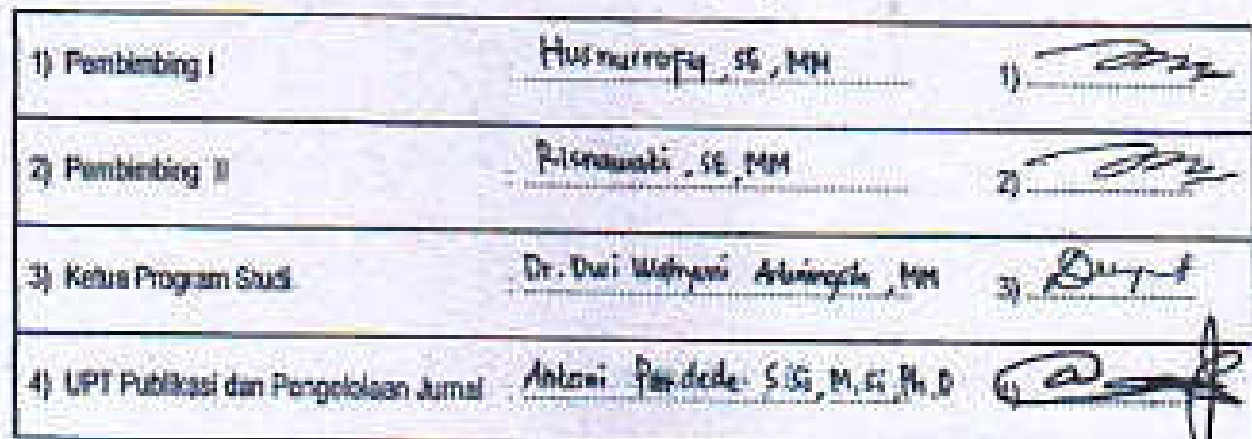 1) Pembimbing I : Husnurrofiq, SE, MM 1)
2) Pembimbing II : Risnawati, SE, MM 2)
3) Ketua Program Studi : Dr. Dwi Wahyuni , MM 3)
4) UPT Publikasi dan Pengelolaan Jurnal : Antoni Pardede S.Si, M.Si, Ph.D 4)